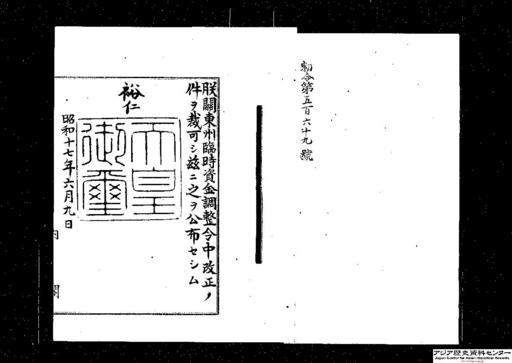 勅令第五百六十九號
朕關東州臨時資金調整令中改正ノ
件ヲ裁可シ茲ニ之ヲ公布セシム
裕仁
天皇
御璽
昭和十七年六月九日
内閣
アジア歴史資料センター
Japan Center for Asian Historical Records